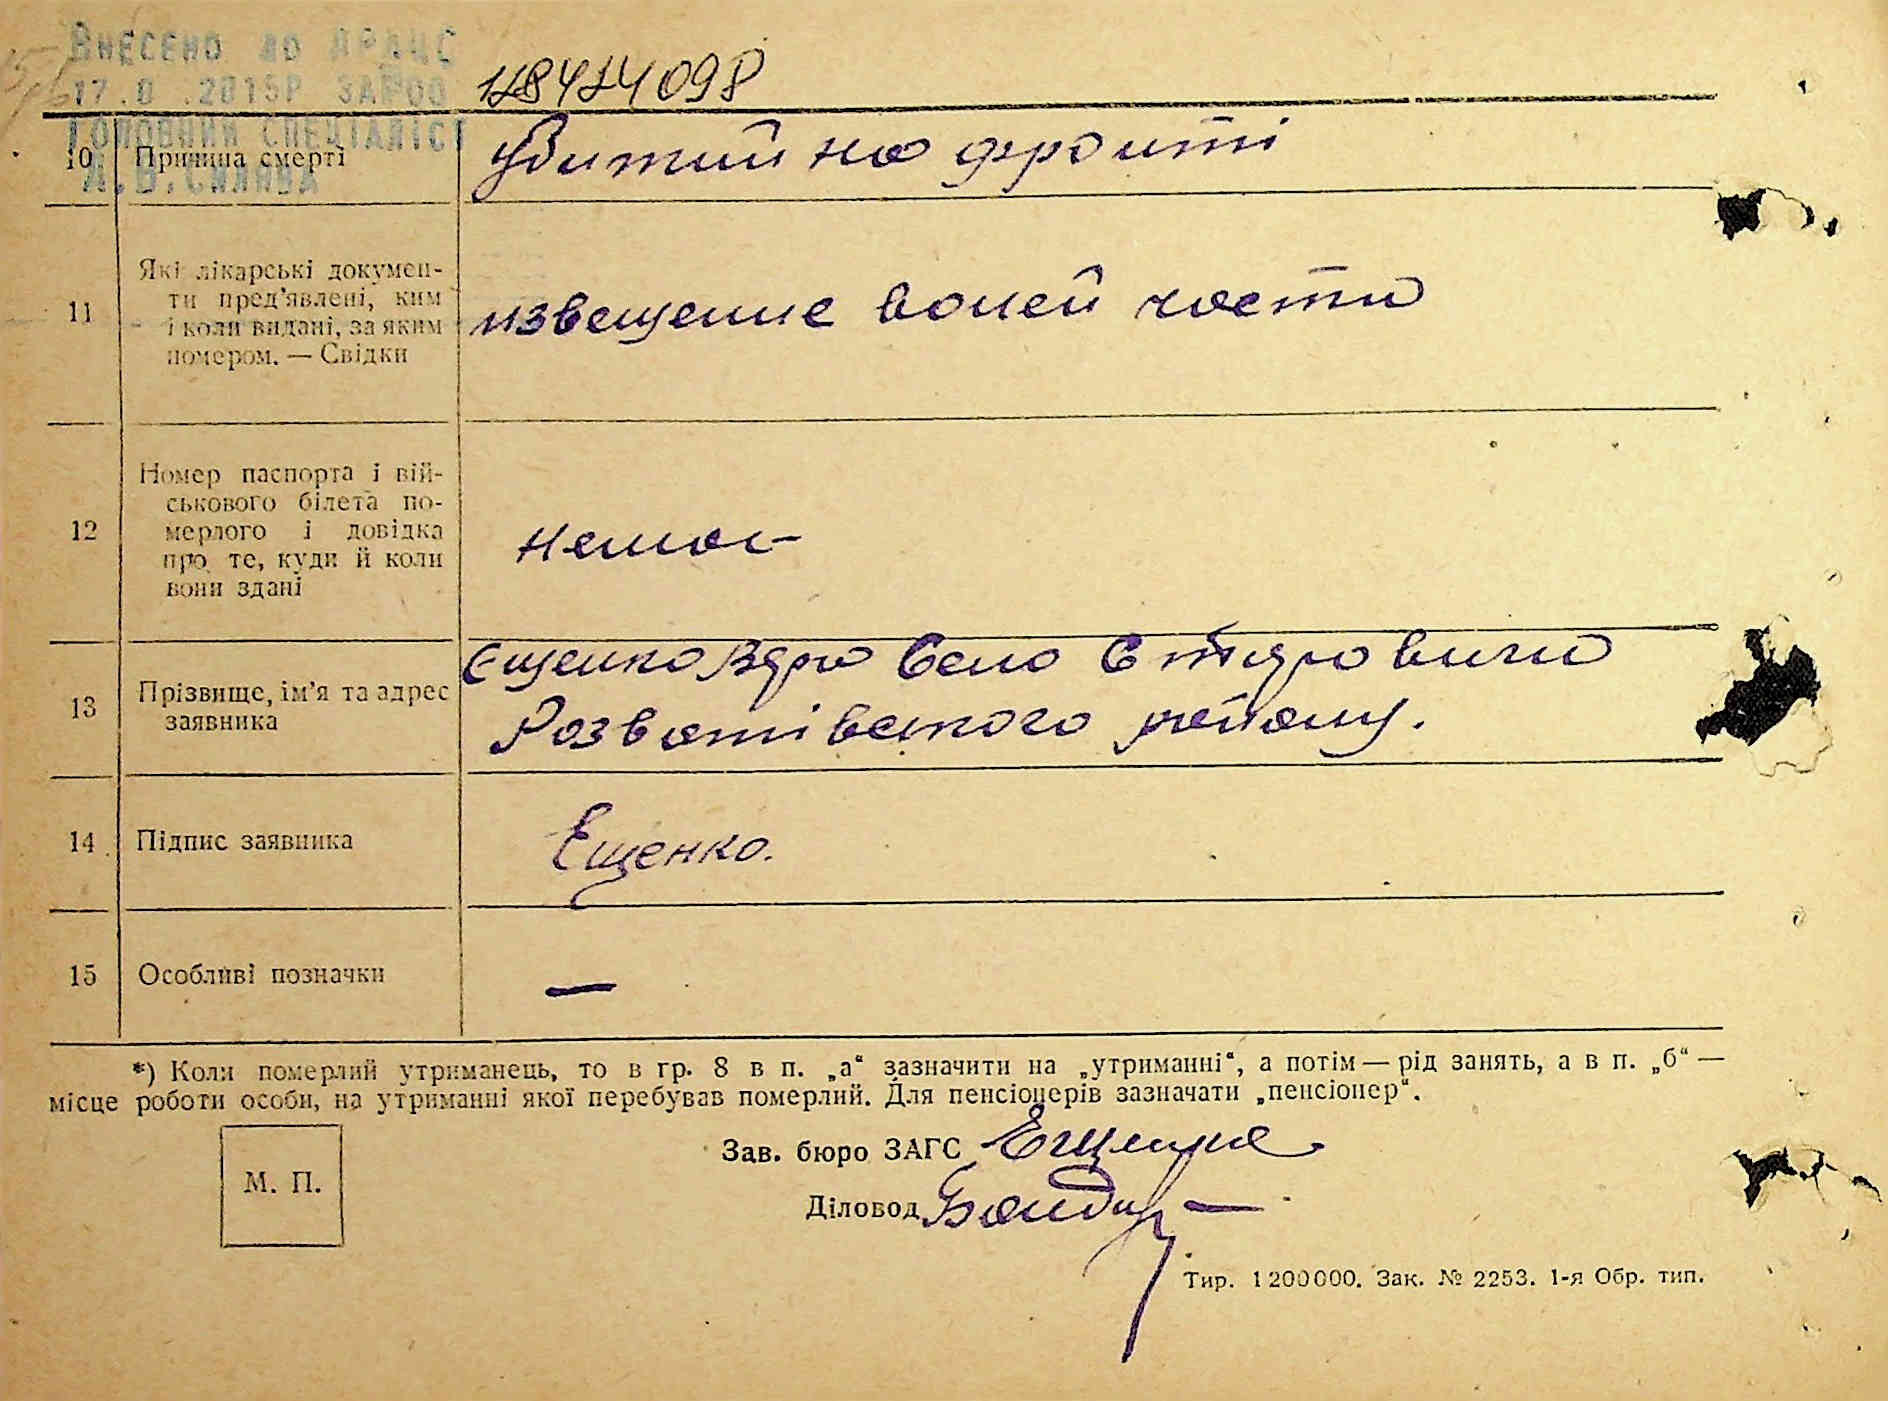 Внесено до ДРАЦС
17.0 .2015р
Головний спеціаліст
10 Причина смерті
Убитий на фронті
11 Які лікарські докумен-
ти пред'явлені, ким
і коли видані, за яким
номером. — Свідки
извещение воней части
12 Номер паспорта і вій-
ськового білета по-
мерлого і довідка
про те, куди й коли
вони здані
немає
13 Прізвище, ім'я та адрес
заявника
Єщенко село
району.
14 Підпис заявника
Ещенко.
15 Особливі позначки
—
*) Коли померлий утриманець, то в гр. 8 в п. „а“ зазначити на „утриманні“, а потім — рід занять, а в п. „б“ —
місце роботи особи, на утриманні якої перебував померлий. Для пенсіонерів зазначати „пенсіонер“.
М. П.
Зав. бюро ЗАГС
Діловод
Тир. 1200000. Зак. № 2253. 1-я Обр. тип.